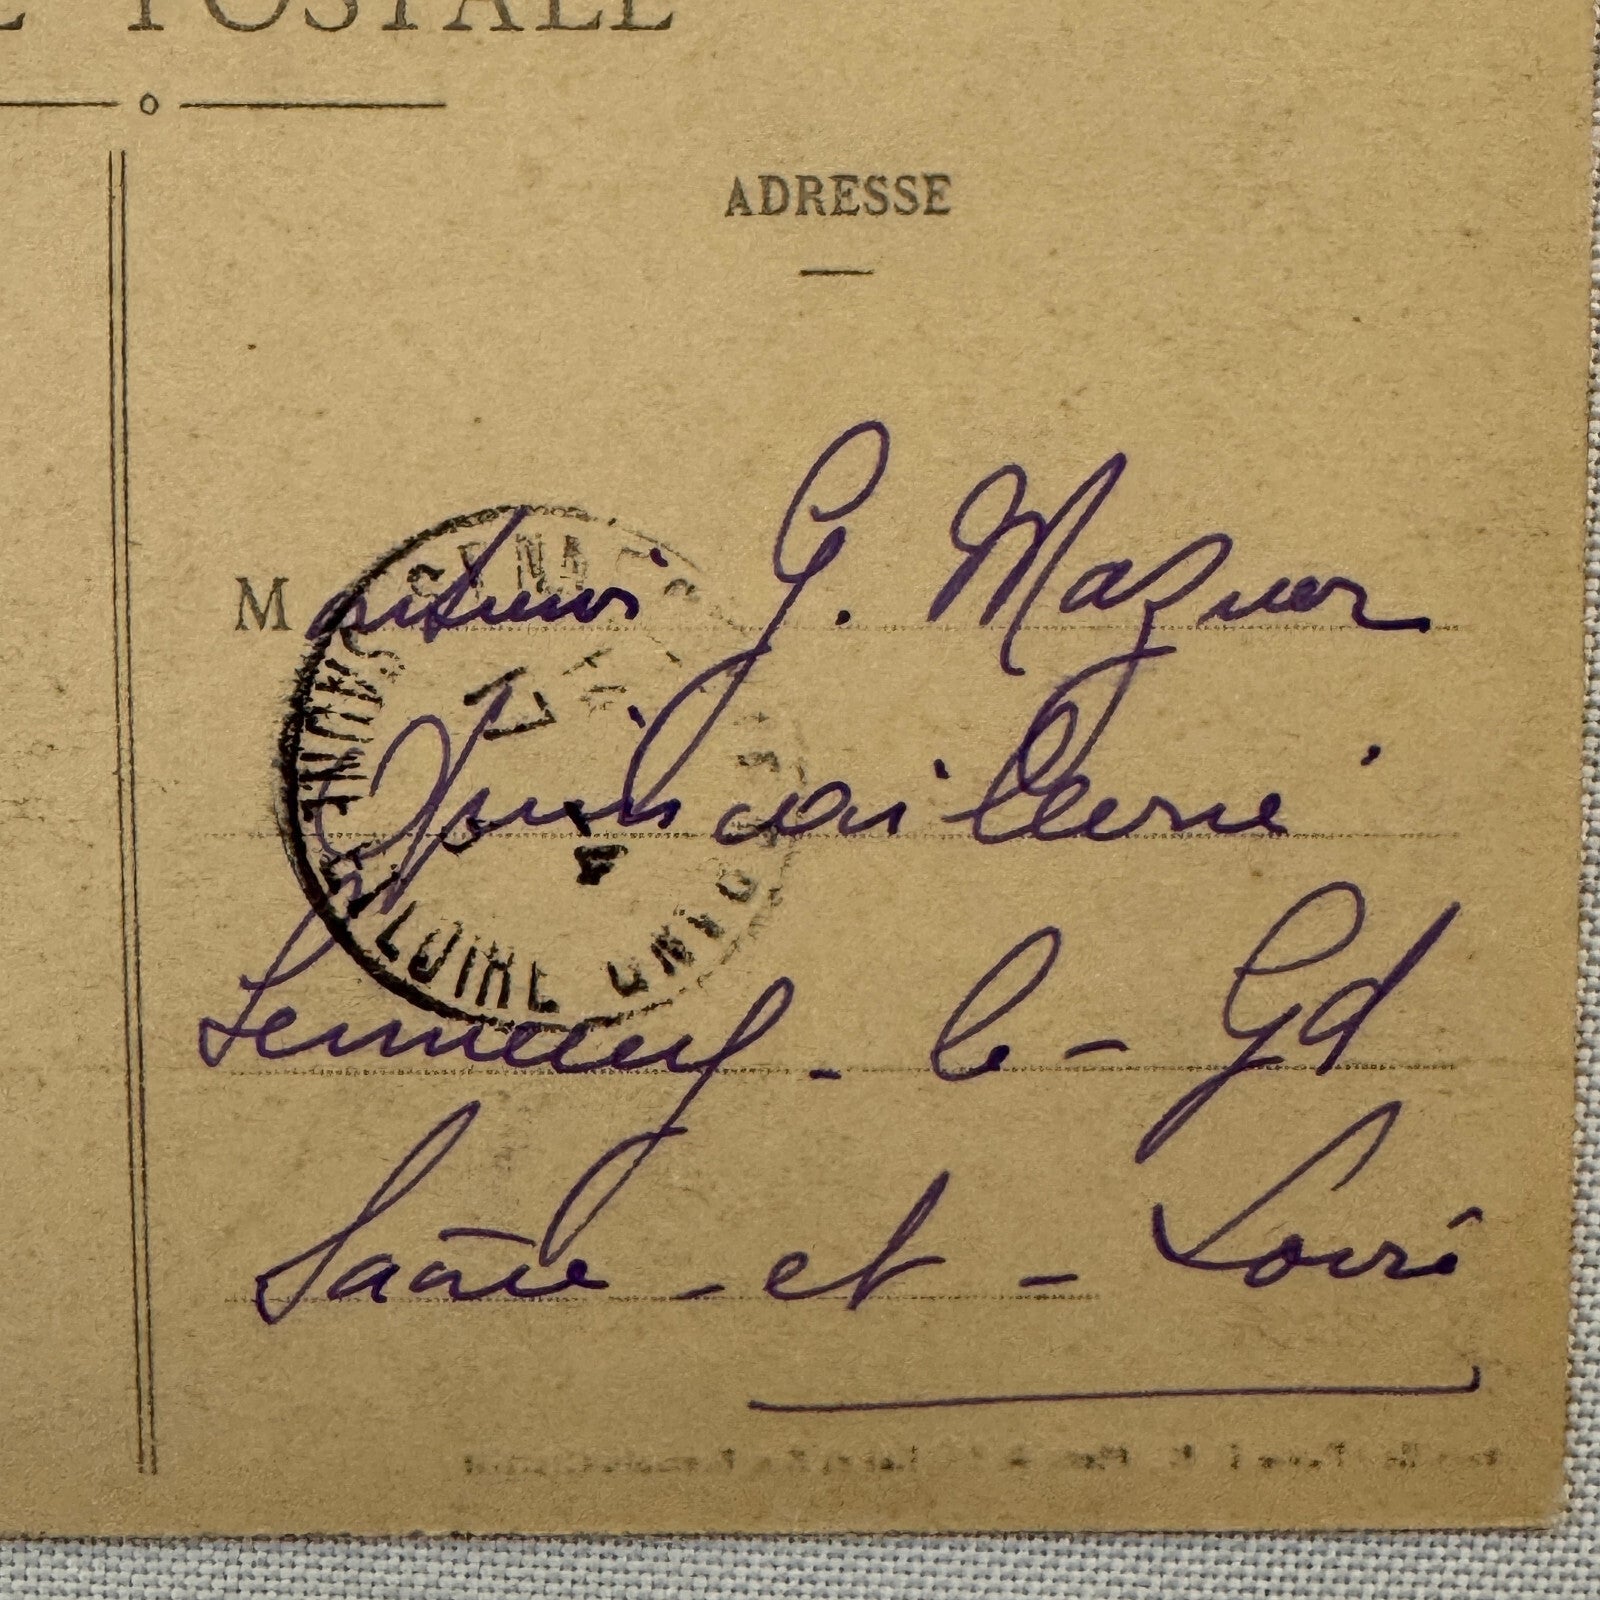 E POSTALE
ADRESSE
Monsieur G. Mazuer
Quincaillerie
Senneceuf - le - Gd
Saône - et - Loire
LOIRE